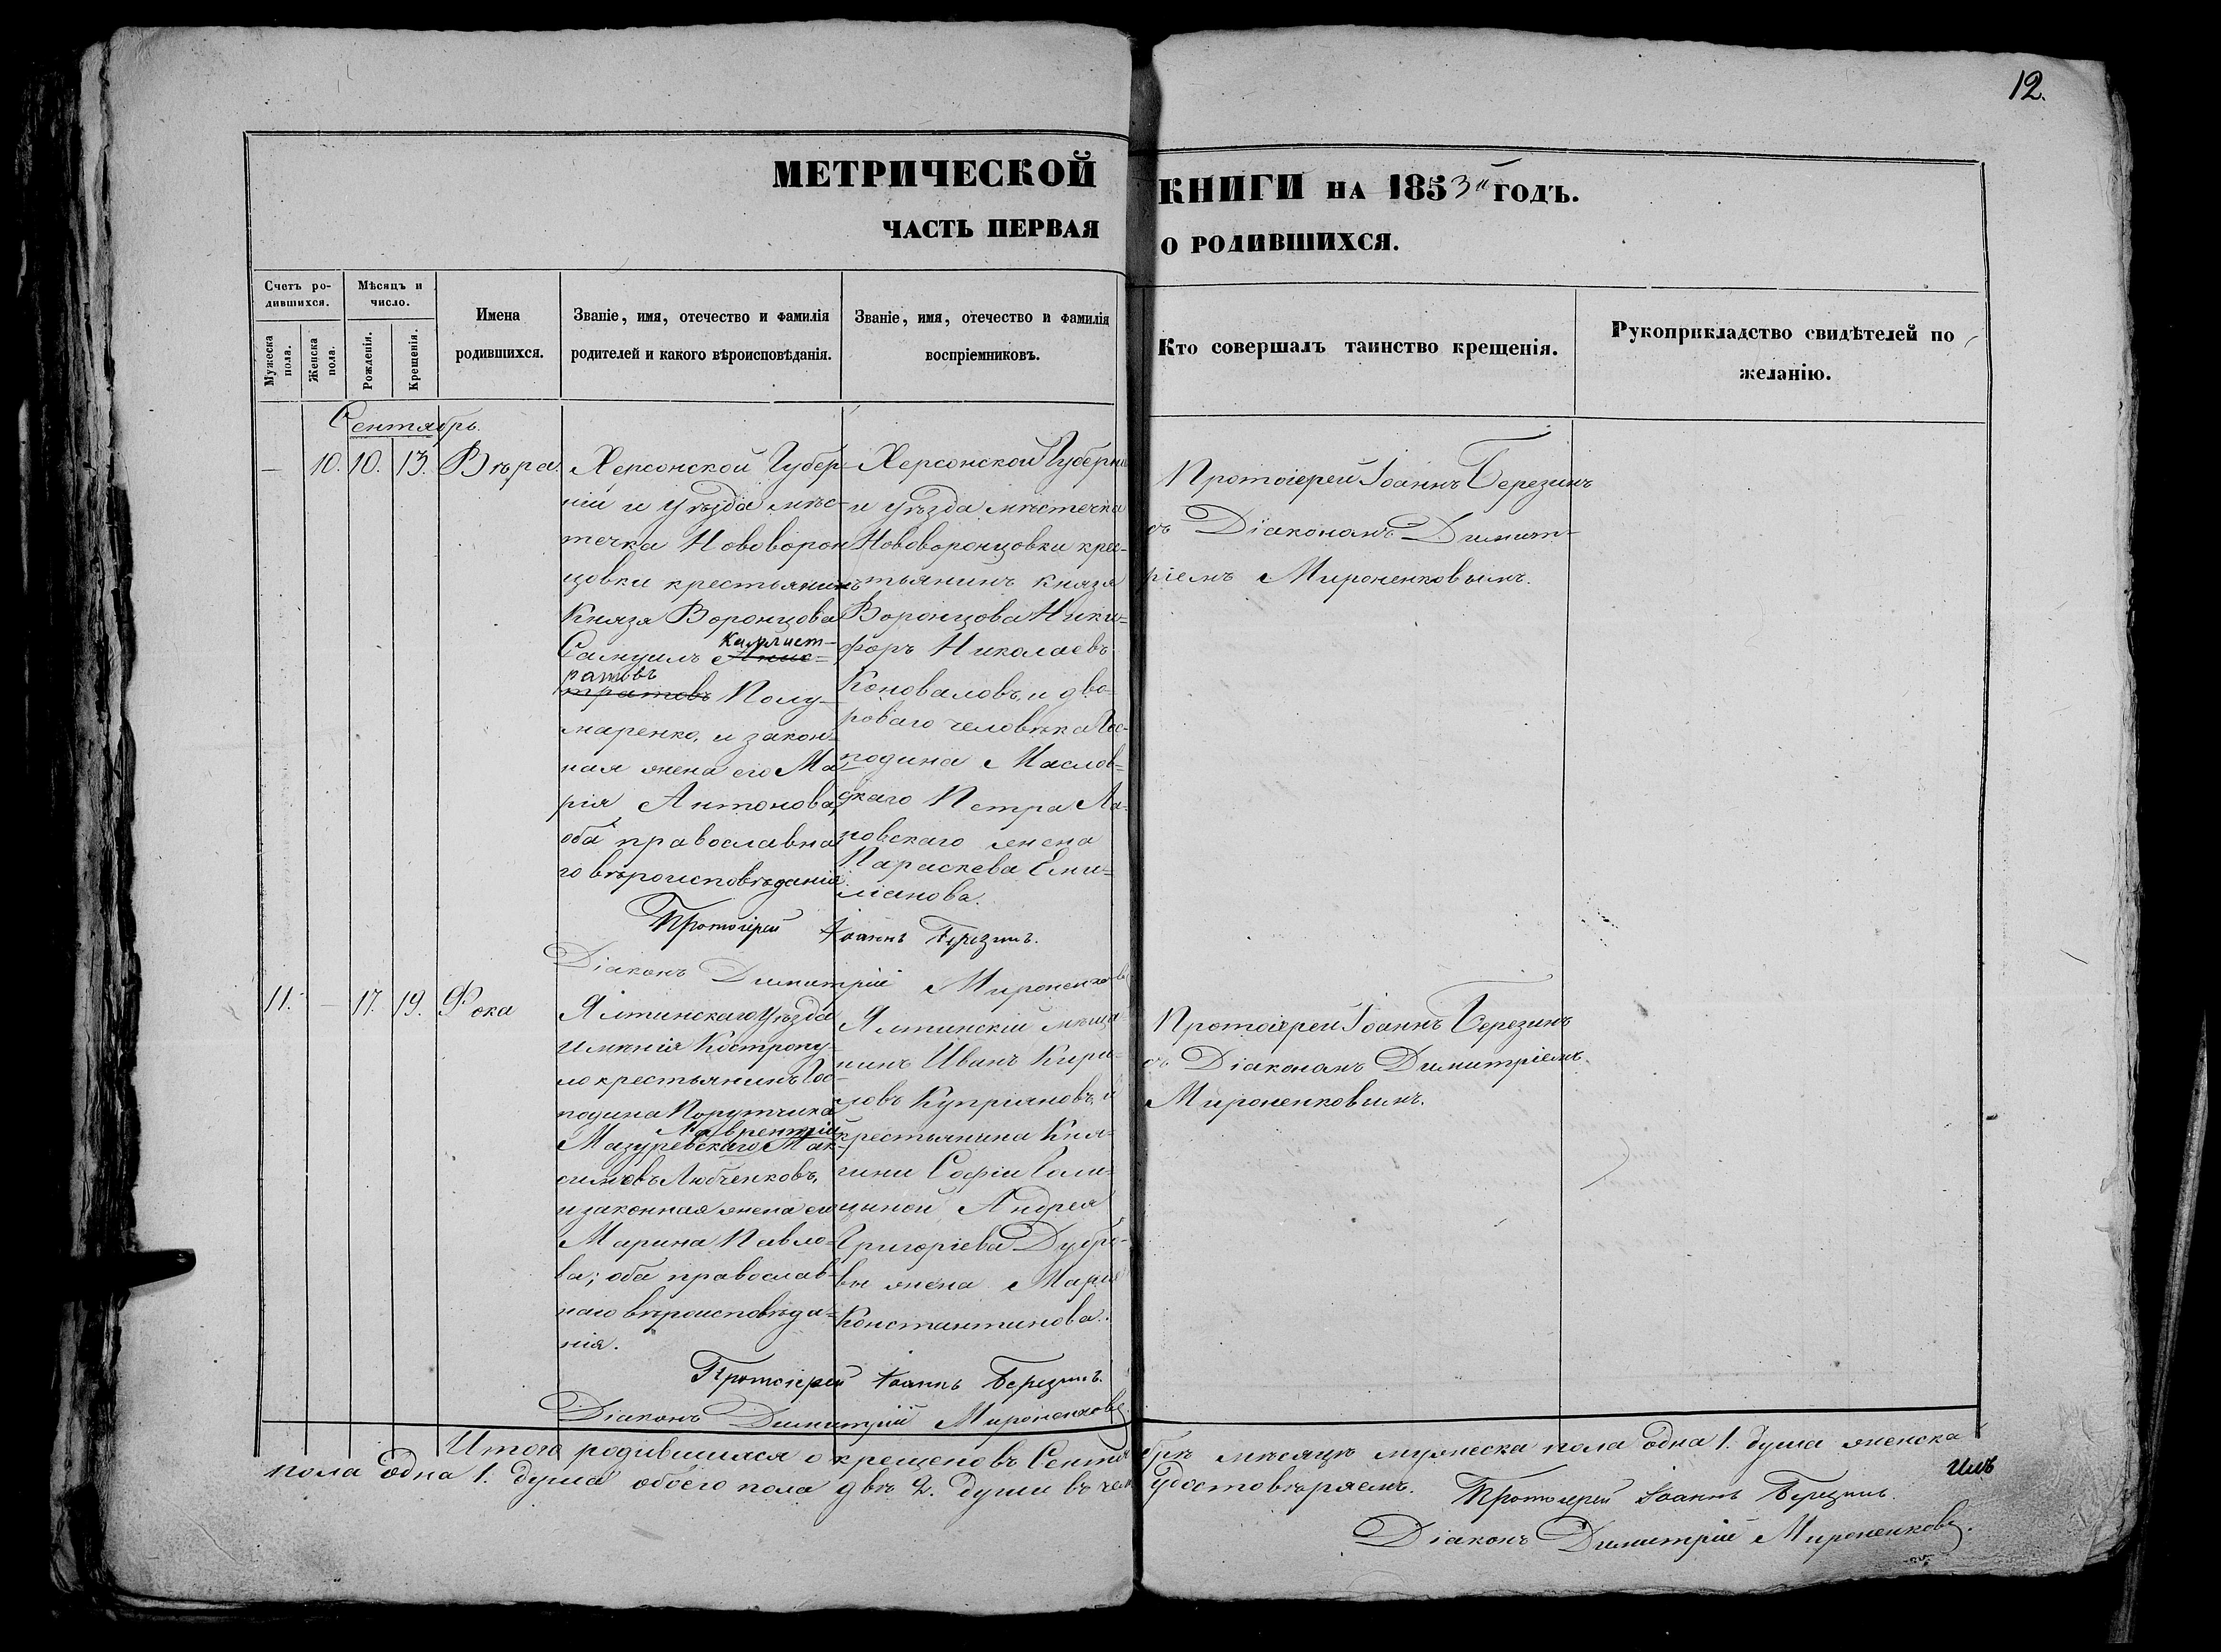 12.
МЕТРИЧЕСКОЙ КНИГИ НА 1853й ГОДЪ.
ЧАСТЬ ПЕРВАЯ О РОДИВШИХСЯ.
Счетъ ро-
дившихся.
Мужеска
пола.
Женска
пола.
Мѣсяцъ и
число.
Рожденія.
Крещенія.
Имена
родившихся.
Званіе, имя, отечество и фамилія
родителей и какого вѣроисповѣданія.
Званіе, имя, отечество и фамилія
воспріемниковъ.
Кто совершалъ таинство крещенія.
Рукоприкладство свидѣтелей по
желанію.
Сентябрь.
— 10. 10. 13. Вѣра.
Херсонской Губер-
ніи и уѣзда мѣс-
течка Нововорон
цовки крестьянинъ
Князя Воронцова
Самуилъ Каллист-
ратовъ Полу-
маренко, и закон-
ная жена его Ма
рія Антонова,
оба православна
го вѣроисповѣданія
Херсонской Губерни
и уѣзда мѣстечка
Нововоронцовки крес-
тьянинъ Князя
Воронцова Ники-
форъ Николаевъ
Коноваловъ, и дво-
роваго человѣка Гос-
подина Маслов-
скаго Петра
жена
Параскева Еми-
ліанова.
Протоіерей Іоаннъ Березинъ
съ Діакономъ Димит-
ріемъ Мироненковымъ.
Протоіерей Іоаннъ Березинъ.
Діаконъ Димитрій Мироненковъ
11. — 17. 19. Фока
Ялтинскаго Уѣзда
имѣнія Кастропу-
ло крестьянинъ Гос-
подина Порутчика
Лаврентій
Мазуревскаго Мак-
симовъ Любченковъ,
и законная жена его
Марина Павло-
ва; оба православ-
наго вѣроисповѣда-
нія.
Ялтинскій мѣща-
нинъ Иванъ Кири-
ловъ Купріяновъ, и
крестьянина Кня-
гини Софіи Гали-
цыной Андрея
Григоріева Дубро-
вы жена Марія
Константинова.
Протоіерей Іоаннъ Березинъ
съ Діакономъ Димитріемъ
Мироненковымъ.
Протоіерей Іоаннъ Березинъ.
Діаконъ Димитрій Мироненковъ.
Итого родившихся о крещено въ Сентябрѣ мѣсяцѣ мужеска пола одна 1. душа женска
пола одна 1. душа обоего пола двѣ 2. души въ чемъ удостовѣряемъ. Протоіерей Іоаннъ Березинъ.
Діаконъ Димитрій Мироненковъ.